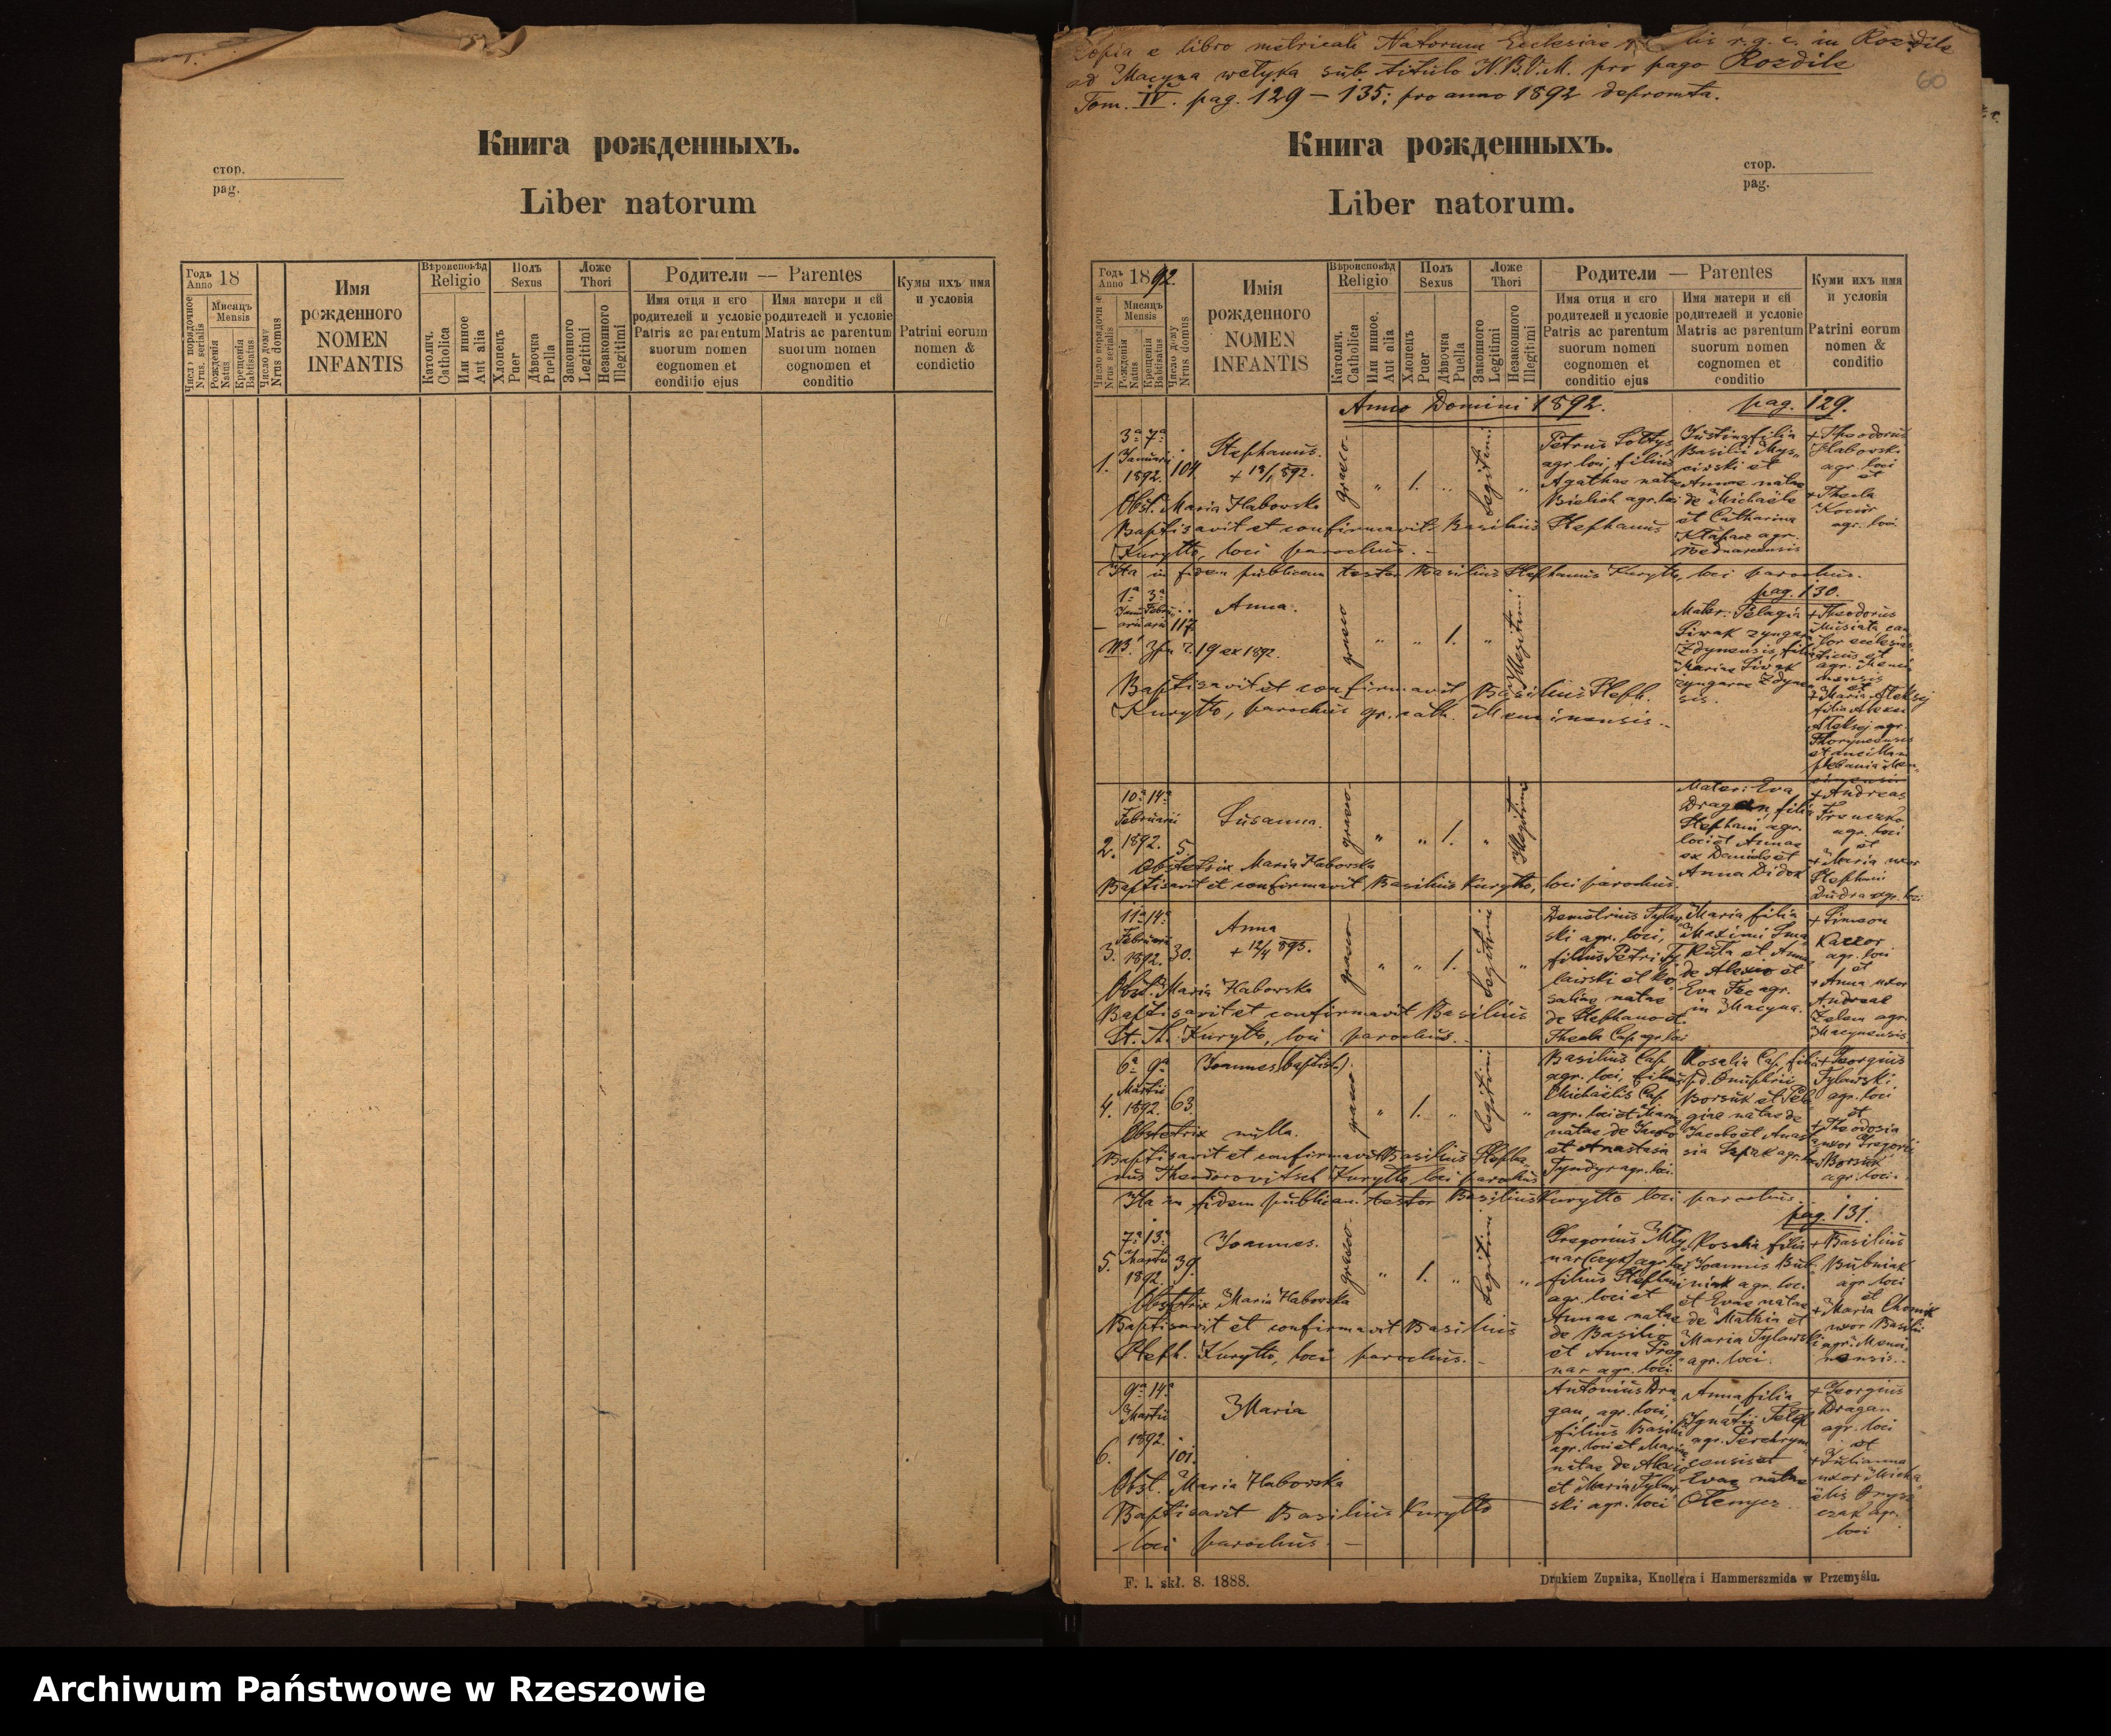 Книга рожденныхъ.
стор.
pag.
Liber natorum
Годъ
Anno 18
Мисяць
Mensis
Число порядочное
Nrus. serialis
Рожденія
Natus
Крещенія
Babtisatus
Число дому
Nrus domus
Имя
рожденного
NOMEN
INFANTIS
Вѣроисповѣд
Religio
Католич.
Catholica
Или инное
Aut alia
Полъ
Sexus
Хлопецъ
Puer
Дѣвочка
Puella
Ложе
Thori
Законного
Legitimi
Незаконного
Illegitimi
Родители — Parentes
Имя отца и его
родителей и условіе
Patris ac parentum
suorum nomen
cognomen et
conditio ejus
Имя матери и ей
родителей и условіе
Matris ac parentum
suorum nomen
cognomen et
conditio
Кумы ихъ имя
и условія
Patrini eorum
nomen &
condictio
Copia e libro metricali Natorum Ecclesiae r. g. c. in Rozdile
ad Macyna welyka sub titulo N.B.V.M. pro pago Rozdile
Tom. IV. pag. 129 – 135; pro anno 1892 depromta.
60
Книга рожденныхъ.
стор.
pag.
Liber natorum.
Годъ
Anno 1892.
Мисяць
Mensis
Число порядочне
Nrus serialis
Рожденія
Natus
Крещенія
Babtisatus
Число дому
Nrus domus
Имія
рожденного
NOMEN
INFANTIS
Вѣроисповѣд
Religio
Католич.
Catholica
Или инное.
Aut alia
Полъ
Sexus
Хлопецъ
Puer
Дѣвочка
Puella
Ложе
Thori
Законного
Legitimi
Незаконного
Illegitimi
Родители — Parentes
Имя отца и его
родителей и условіе
Patris ac parentum
suorum nomen
cognomen et
conditio ejus
Имя матери и ей
родителей и условіе
Matris ac parentum
suorum nomen
cognomen et
conditio
Куми ихъ имя
и условія
Patrini eorum
nomen &
conditio
Anno Domini 1892. pag. 129.
1. 3ª 7ª
Januarii
1892. 104.
Stephanus.
+ 18/1 892.
graeco
" 1. "
Legitimi "
Petrus Soltys
agr. loci, filius
Agathae natae
Bielich agr. loci
Justina filia
Basilii
et
Annae natae
de Michaële
et Catharina
agr.
Bednarcensis
+ Theodorus
Habowski
agr. loci
et
+ Thecla
Kocur
agr. loci.
Obst. Maria Habowska
Baptisavit et confirmavit Basilius Stephanus
Kurytto, loci parochus.
Ita in fidem publicam testor Basilius Stephanus Kurytto, loci parochus.
pag. 130.
1ª 3ª
117
Anna.
graeco
" " 1. "
Illegitimi
19 ex 1892.
Mater: Pelagia
Siwak zyngara
Zdynensis, filia
Mariae Siwak
zyngarae Zdynen
sis.
+ Theodorus
Musiata can
tor ecclesias
ticus et
agr.
et
+ Maria Aleksej
filia Alexii
Aleksej agr.
Baptisavit et confirmavit Basilius Steph.
Kurytto, parochus gr. cath. Mencinensis.
2. 10ª 14ª
Februarii
1892. 5.
Susanna.
graeco
" " 1. "
Illegitimi
Mater: Eva
Dragan, filia
Stephani agr.
loci et Annae
ex Daniele et
Anna Didok
+ Andreas
Frenczko
agr. loci
et
+ Maria uxor
Stephani
Dudra agr. loci
Obstetrix Maria Habowska
Baptisavit et confirmavit Basilius Kurytto, loci parochus.
3. 11ª 14ª
Februarii
1892. 30.
Anna
+ 12/4 893.
graeco
" " 1.
Legitimi "
Demetrius Tylaw
ski agr. loci,
filius Petri Ty
lawski et Ro
saliae natae
de Stephano et
Thecla Cap agr. loci
Maria filia
Maximi
et Anna
de Alexio et
Eva Fec agr.
in Macyna.
+ Simeon
Kaczor
agr. loci
et
+ Anna uxor
Andreae
Zelem agr.
Macynensis
Obst. Maria Habowska
Baptisavit et confirmavit Basilius
St. Th. Kurytto, loci parochus.
4. 6ª 9ª
Martii
1892. 63.
Joannes (baptista)
graeco
" 1. "
Legitimi "
Basilius Cap
agr. loci, filius
Michaëlis Cap
agr. loci et Maria
natae de Jacobo
et Anastasia
Tyndyr agr. loci.
Rosalia Cap, filia
p.d. Onuphrii
Borsuk et Pela
giae natae de
Jacobo et Anas
sia agr. loci
+ Georgius
Tylawski
agr. loci
et
+ Theodosia
uxor Gregorii
Borsuk
agr. loci.
Obstetrix nulla.
Baptisavit et confirmavit Basilius Stepha
nus Theodorovitsch Kurytto loci parochus
Ita in fidem publicam testor Basilius Kurytto loci parochus
pag. 131.
5. 7ª 13ª
Martii
1892. 39.
Joannes.
graeco
" 1. "
Legitimi "
Gregorius Mły
nar(czyk) agr. loci
filius Stephani
agr. loci et
Annae natae
de Basilio
et Anna
nar agr. loci
Rosalia filia
Joannis Bub
niak agr. loci
et Evae natae
de Mathia et
Maria Tylawski
agr. loci.
+ Basilius
Bubniak
agr. loci
et
+ Maria Chomik
uxor Basilii
agr. Menci
nensis.
Obstetrix Maria Habowska
Baptisavit et confirmavit Basilius
Steph. Kurytto, loci parochus.
6. 9ª 14ª
Martii
1892. 101.
Maria
Antonius Dra
gan, agr. loci,
filius Basilii
agr. loci et Mariae
natae de Alexio
et Maria Tylaw
ski agr. loci
Anna filia
Ignatii
agr. Perehrym
censis et
Evae natae
Olenycz
+ Georgius
Dragan
agr. loci
et
+ Julianna
uxor Micha
ëlis
agr.
loci
Obst. Maria Habowska
Baptisavit Basilius Kurytto
loci parochus.
F. l. skł. 8. 1888.
Drukiem Zupnika, Knollera i Hammerszmida w Przemyślu.
Archiwum Państwowe w Rzeszowie